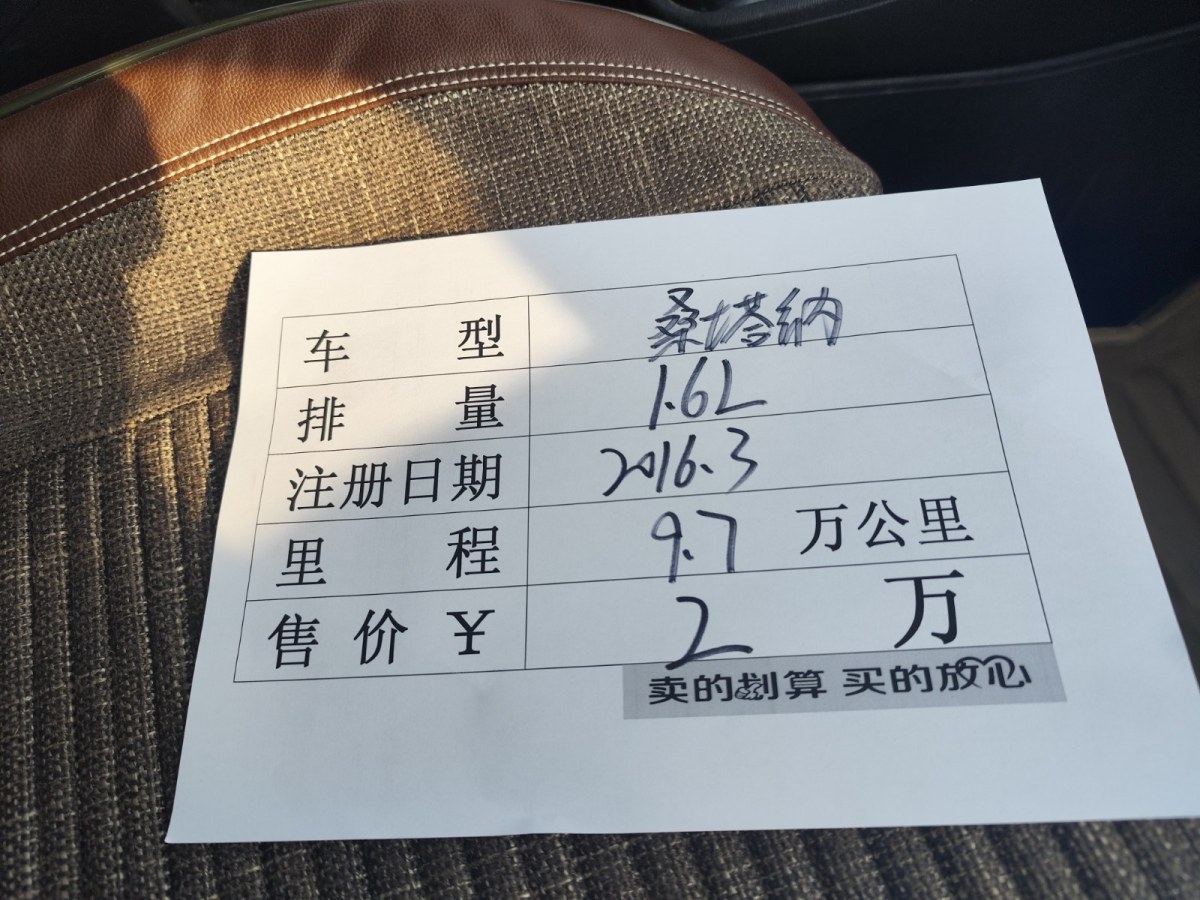 车型 桑塔纳
排量 1.6L
注册日期 2016.3
里程 9.7 万公里
售价¥ 2 万
卖的划算 买的放心